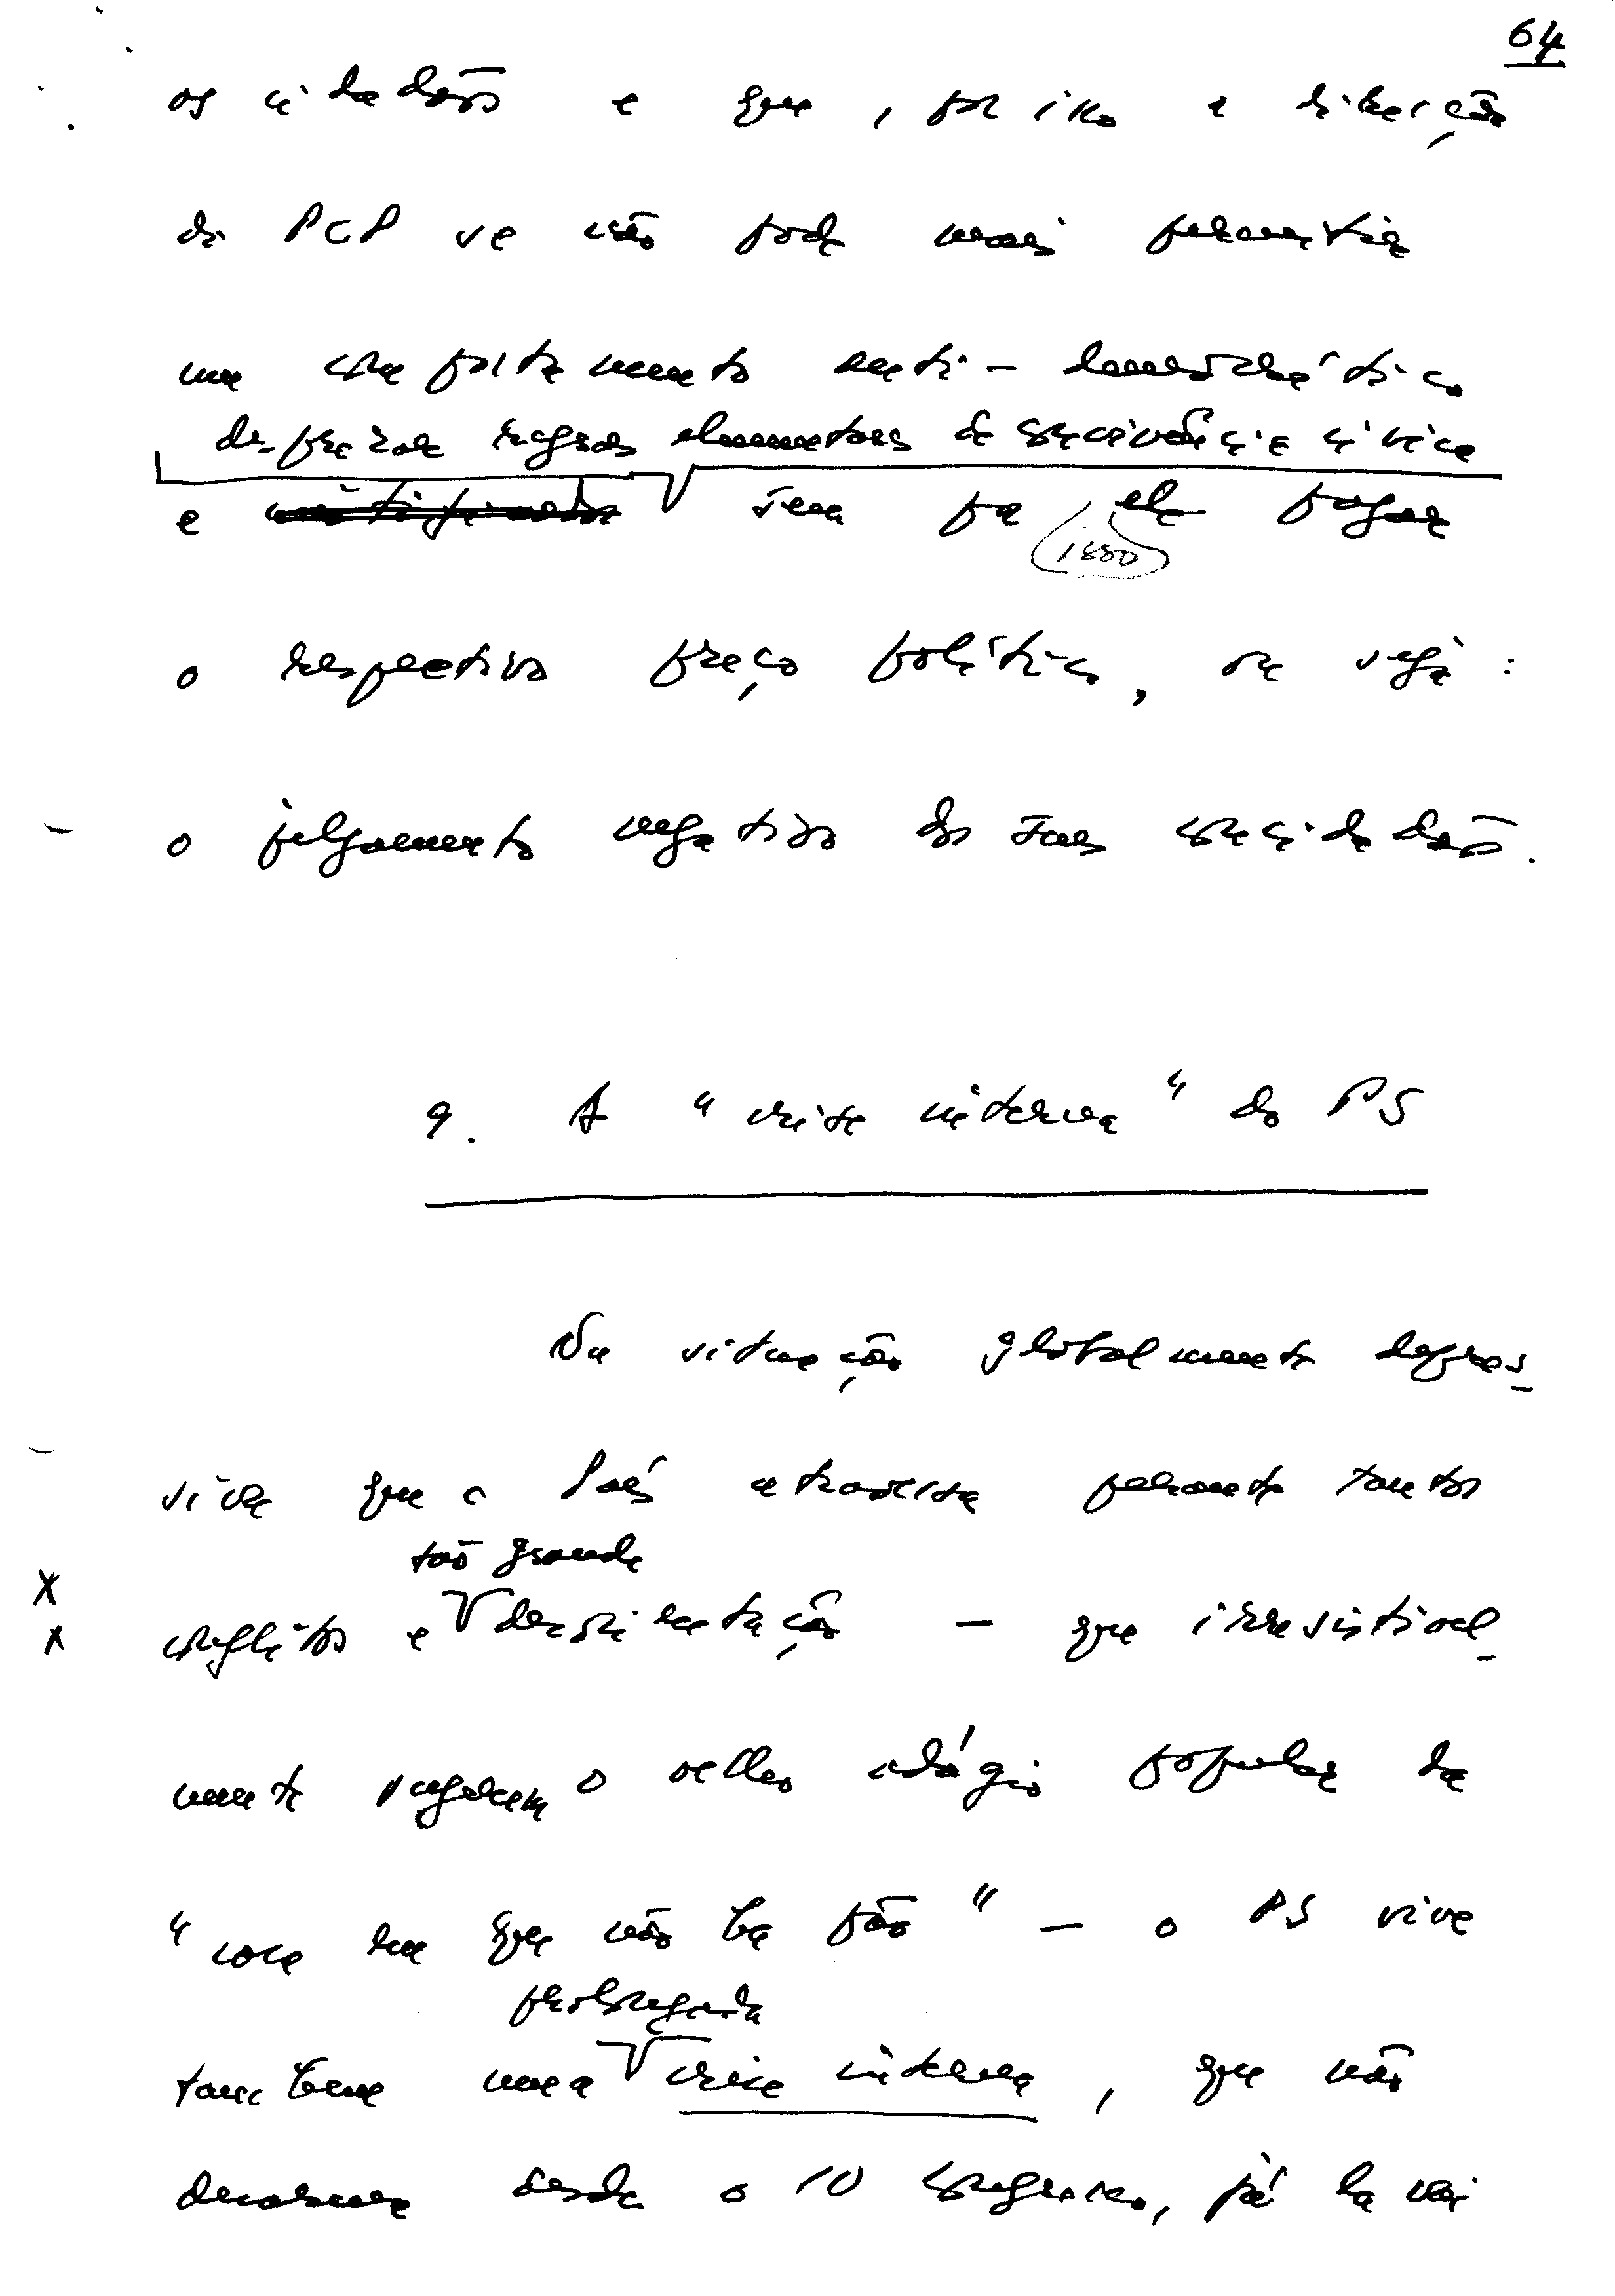 64
os cidadãos e que, por isso a direcção
do PCP se não pode mais permitir
um comportamento anti-democrático
desprezar regras elementares de convivência cívica
e sem para pagar
isso
o respectivo preço político, ou seja:
o julgamento negativo dos seus concidadãos.
9. A "crise interna" do PS
Na situação globalmente depres-
siva que o País atravessa perante tantos
tão grande
conflitos e desorientação - que irresistivel-
mente sugerem o velho adágio popular da
"casa em que não há pão" - o PS vive
prolongada
também uma crise interna, que não
desarma desde o IV Congresso, já lá vai